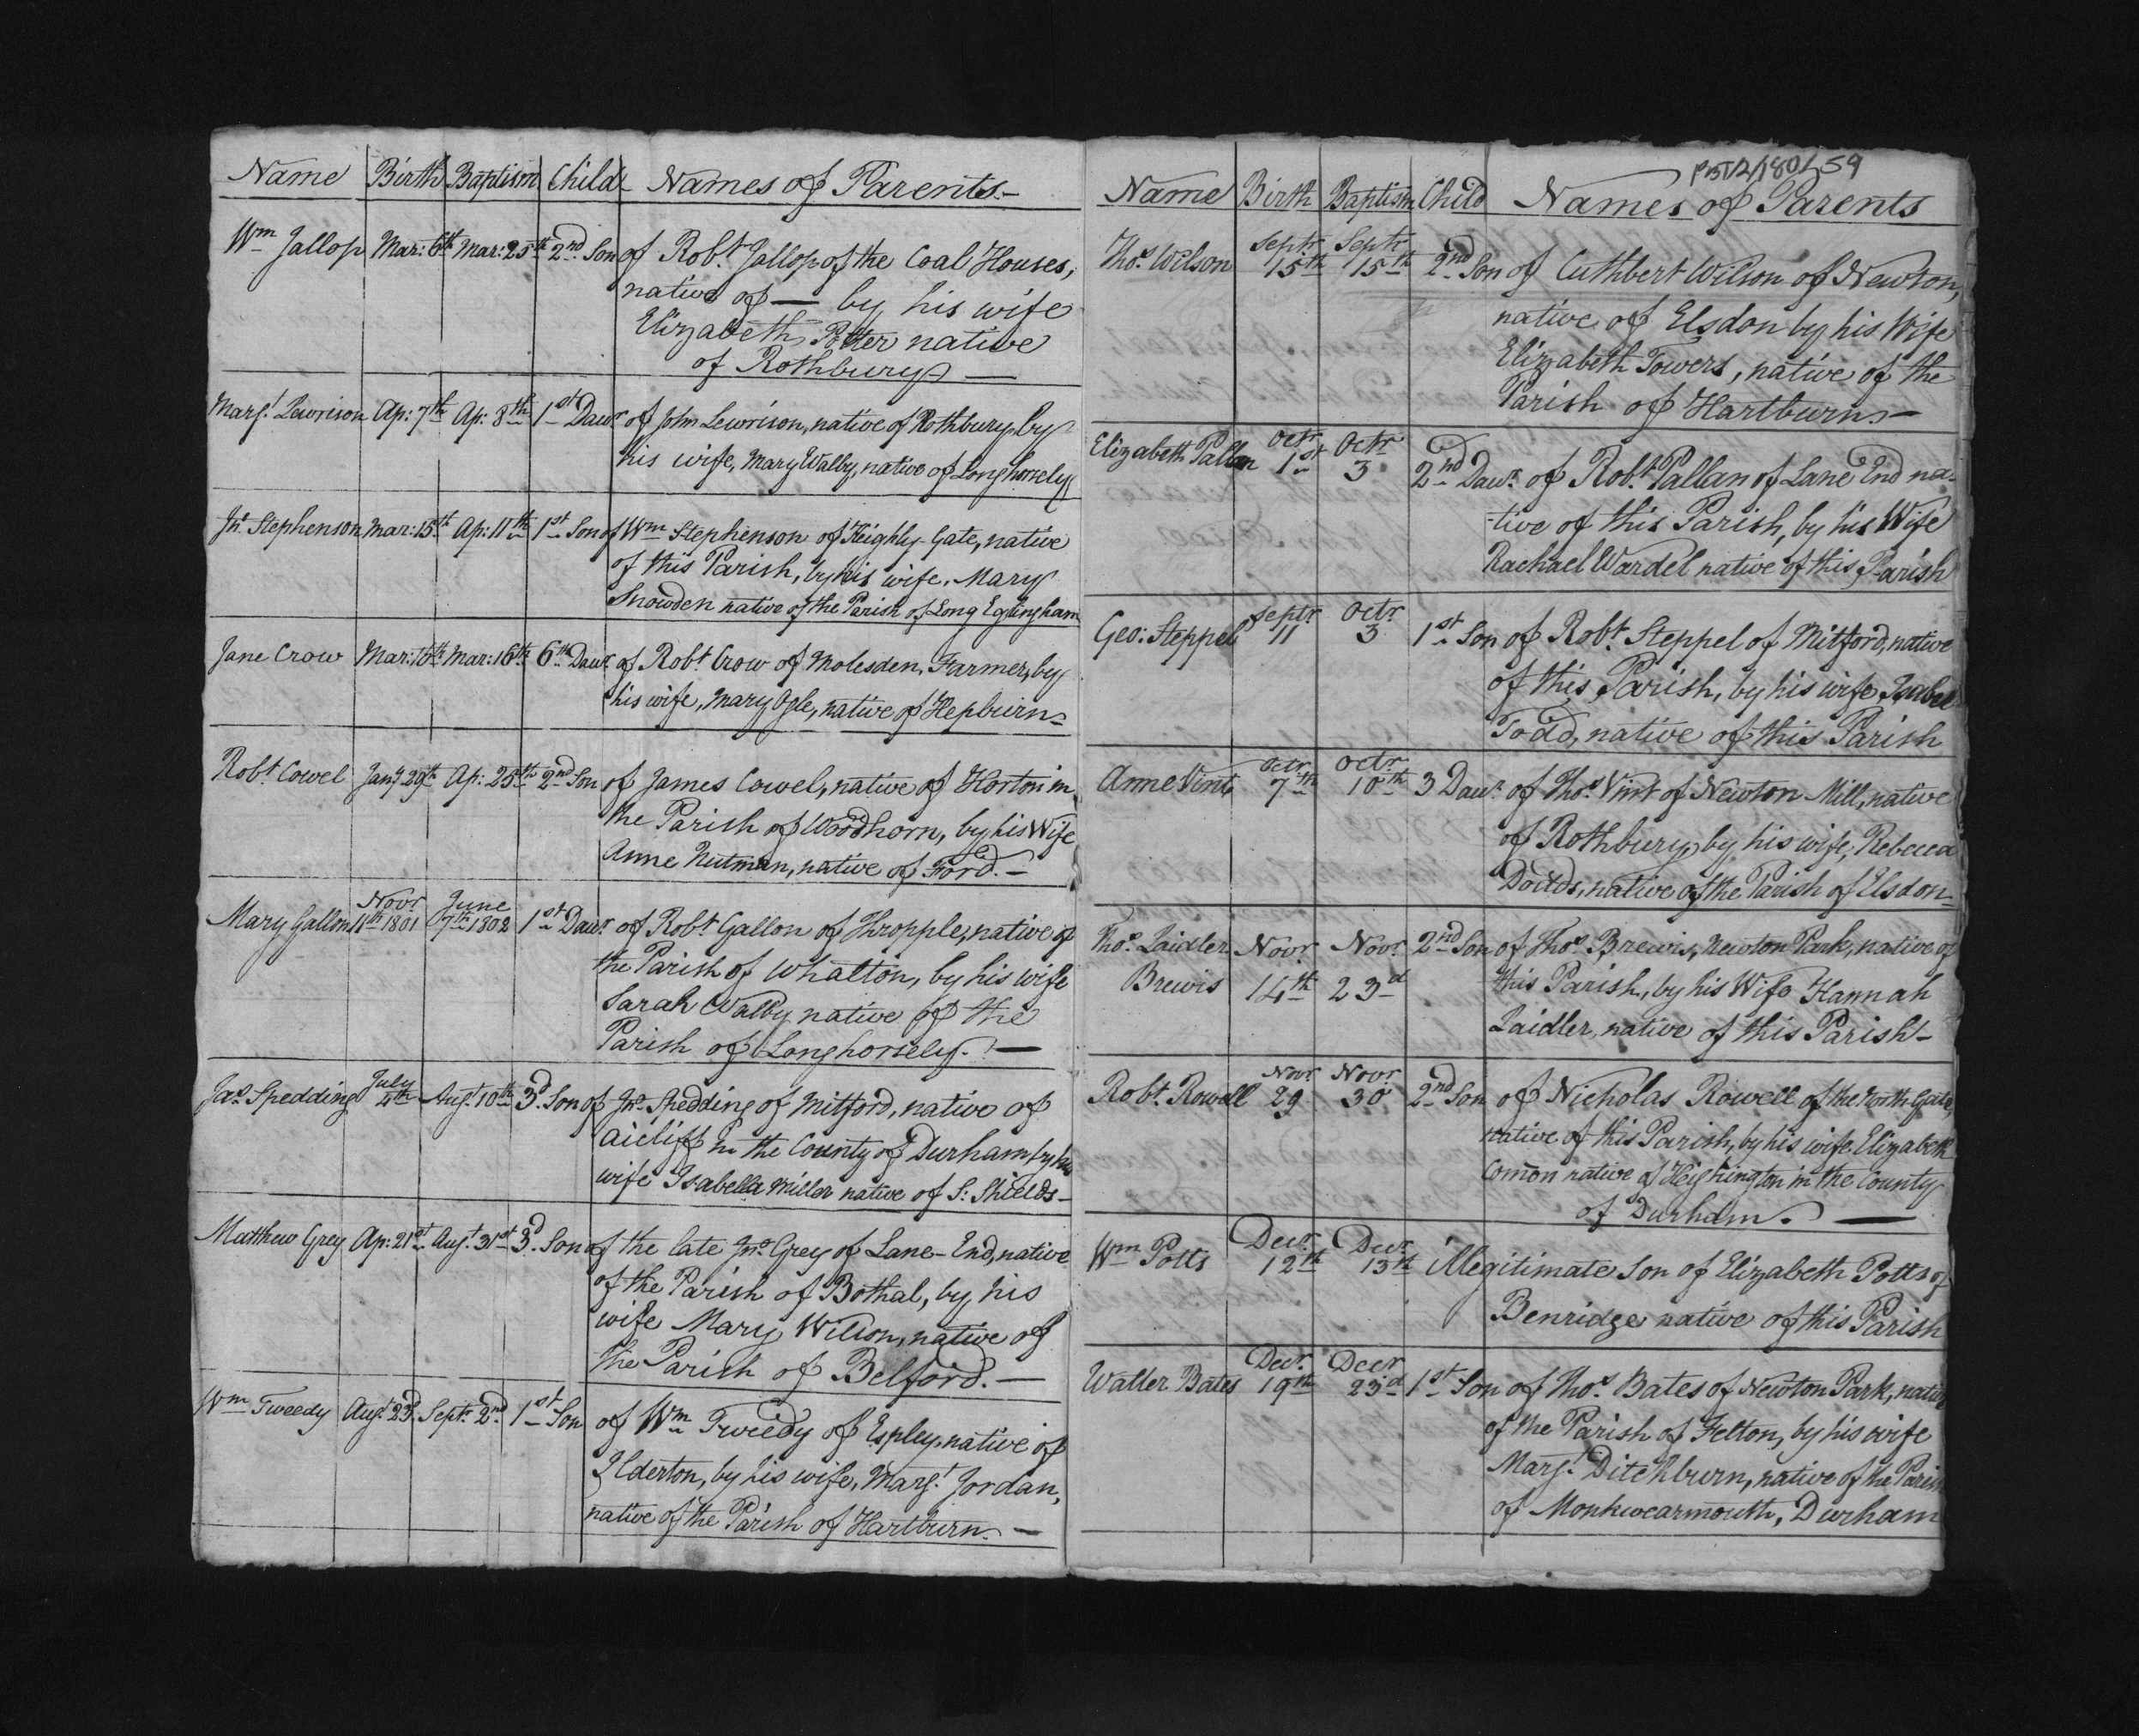 Name Birth Baptism Child Names of Parents
Wm Jallop Mar: 6th Mar: 25th 2nd Son of Robt Jallop of the Coal Houses,
native of — by his wife
Elizabeth Potter native
of Rothbury —
Margt Lewrison Ap: 7th Ap: 8th 1st Dawr of John Lewrison, native of Rothbury by
his wife, Mary Walby, native of Longhorsely
Jno Stephenson Mar: 15th Ap: 11th 1st Son of Wm Stephenson of Heighly Gate, native
of this Parish, by his wife, Mary
Snowden native of the Parish of Long Eglingham
Jane Crow Mar: Mar: 16th 6th Dawr of Robt Crow of Molesden, Farmer, by
his wife, Mary Ogle, native of Hepburn —
Robt Cowel Jany 29th Ap: 25th 2nd Son of James Cowel, native of Horton in
the Parish of Woodhorn, by his Wife
Anne Nutman, native of Ford. —
Novr June
Mary Gallon 11th 1801 7th 1802 1st Dawr of Robt Gallon of Thropple, native of
the Parish of Whalton, by his wife
Sarah Walby native of the
Parish of Longhorsely. —
July
Jas Spedding 4th Augt 10th 3d Son of Jno Spedding of Mitford, native of
Aicliff in the County of Durham, by his
wife Isabella Miller native of S: Shields —
Matthew Grey Ap: 21st Augt 31st 3d Son of the late Jno Grey of Lane-End, native
of the Parish of Bothal, by his
wife Mary Wilson, native of
the Parish of Belford. —
Wm Tweedy Augt 23d Septr 2nd 1st Son of Wm Tweedy of Espley, native of
Ilderton, by his wife, Margt Jordan,
native of the Parish of Hartburn. —
59
Name Birth Baptism Child Names of Parents
Septr Septr
Thos Wilson 15th 15th 2nd Son of Cuthbert Wilson of Newton,
native of Elsdon by his Wife
Elizabeth Towers, native of the
Parish of Hartburn —
Octr Octr
Elizabeth Pallan 1st 3 2nd Dawr of Robt Pallan of Lane End na-
-tive of this Parish, by his Wife
Rachael Wardel native of this Parish
Septr Octr
Geo: Steppel 11 3 1st Son of Robt Steppel of Mitford, native
of this Parish, by his wife Isabel
Todd, native of this Parish
Octr Octr
Anne Vint 7th 10th 3 Dawr of Thos Vint of Newton Mill, native
of Rothbury by his wife, Rebecca
Dodds, native of the Parish of Elsdon —
Thos Laidler Novr Novr 2nd Son of Thos Brewis, Newton Park, native of
Brewis 14th 23d this Parish, by his Wife Hannah
Laidler, native of this Parish —
Novr Novr
Robt Rowell 29 30 2nd Son of Nicholas Rowell of the North Gate,
native of this Parish, by his wife Elizabeth
Comon native of Heighington in the County
of Durham. —
Decr Decr
Wm Potts 12th 13th illegitimate Son of Elizabeth Potts of
Benridge native of this Parish
Decr Decr
Walter Bates 19th 23d 1st Son of Thos Bates of Newton Park, native
of the Parish of Felton, by his wife
Margt Ditchburn, native of the Parish
of Monkwearmouth, Durham